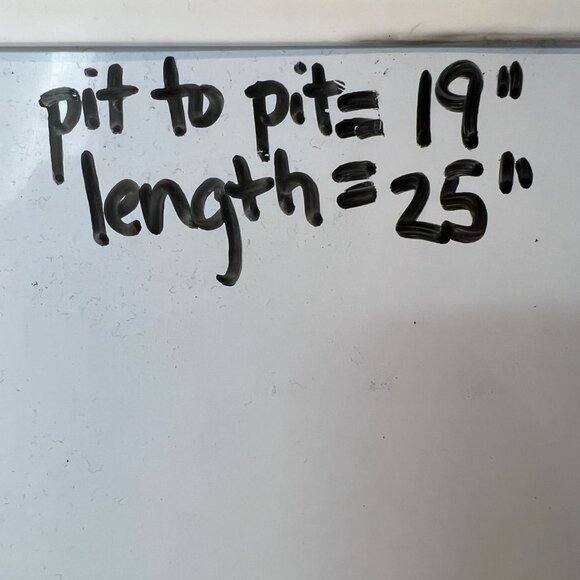 pit to pit = 19"
length = 25"